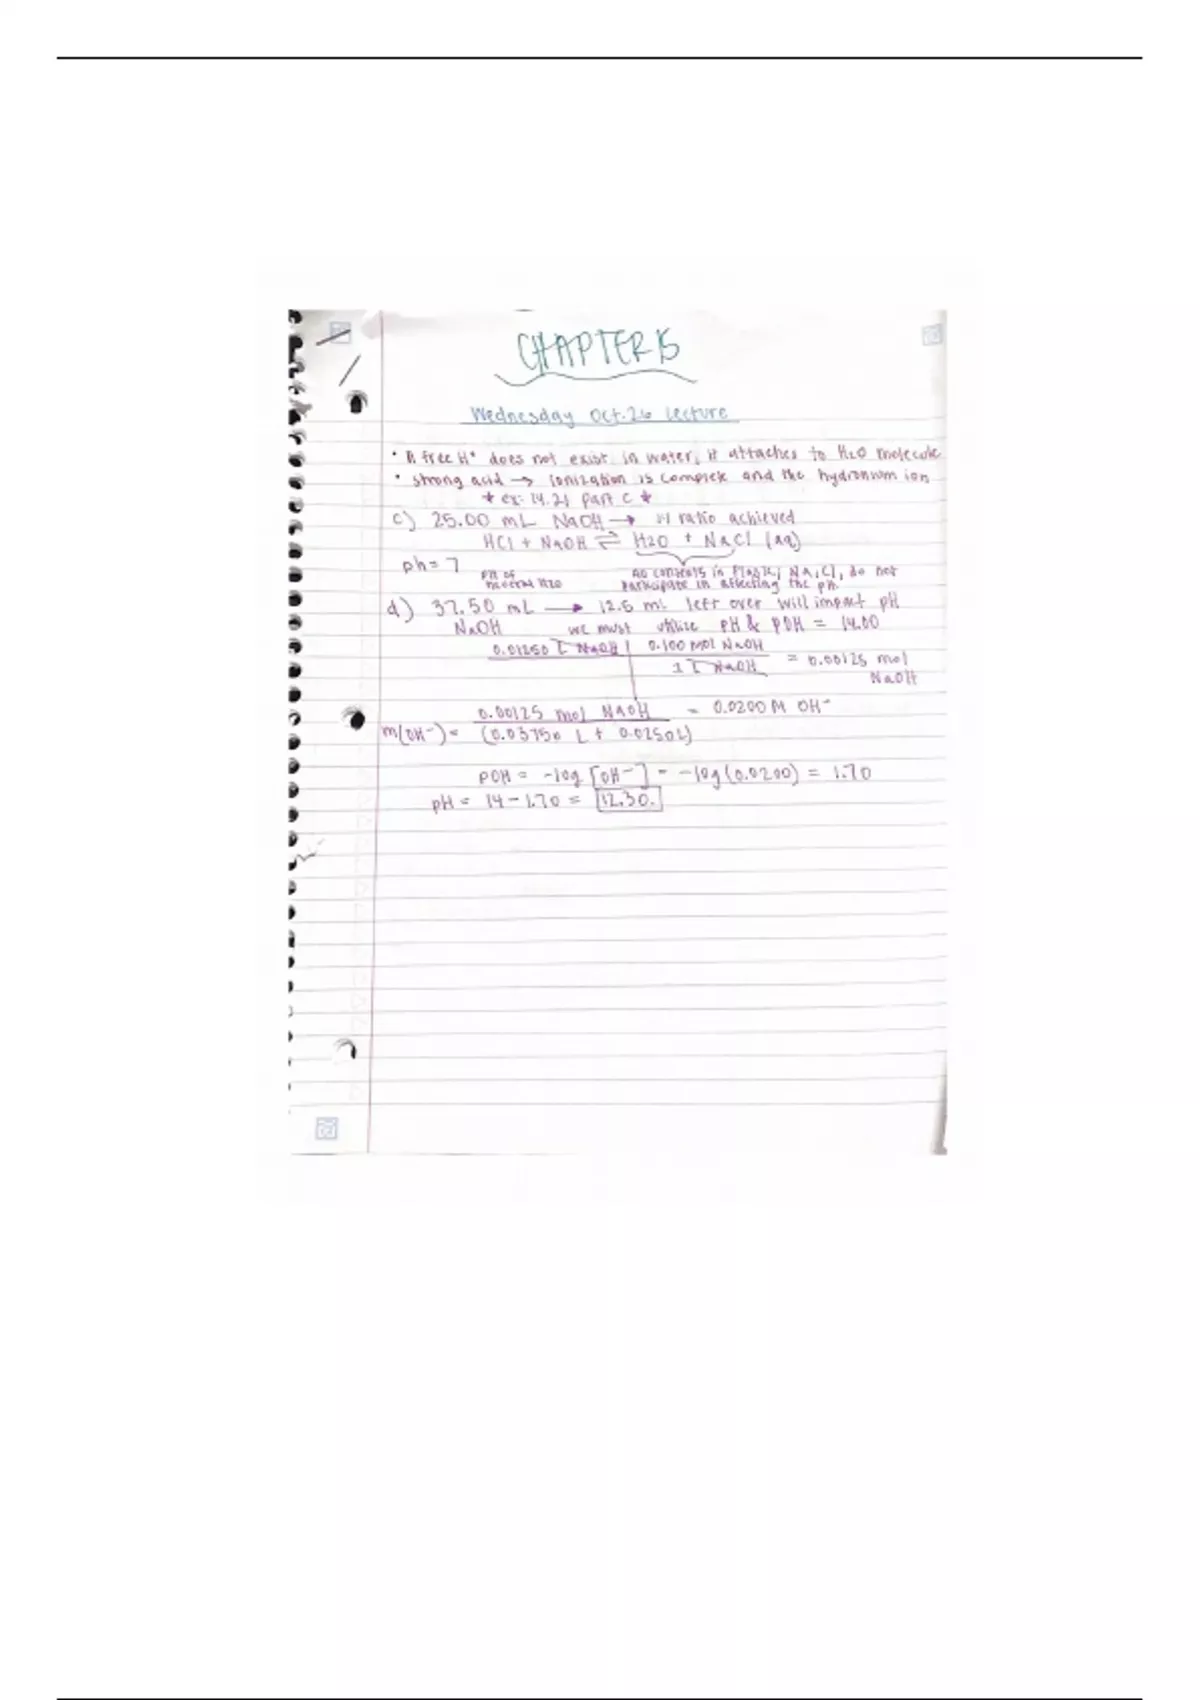 CHAPTER 15
Wednesday Oct. 26 Lecture
• A free H⁺ does not exist in water, it attaches to H2O molecule
• strong acid → Ionization is complete and the hydronium ion
* ex: 14.21 part C *
c) 25.00 mL NaOH → 1:1 ratio achieved
HCl + NaOH ⇌ H2O + NaCl (aq)
ph = 7
pH of neutral H2O
Na, Cl, do not
participate in affecting the pH.
d) 37.50 mL → 12.5 mL left over will impact pH
NaOH we must utilize pH & pOH = 14.00
0.01250 L NaOH | 0.100 mol NaOH
1 L NaOH = 0.00125 mol
NaOH
0.00125 mol NaOH = 0.0200 M OH⁻
m(OH⁻) = (0.03750 L + 0.0250L)
pOH = -log [OH⁻] = -log(0.0200) = 1.70
pH = 14 - 1.70 = 12.30.